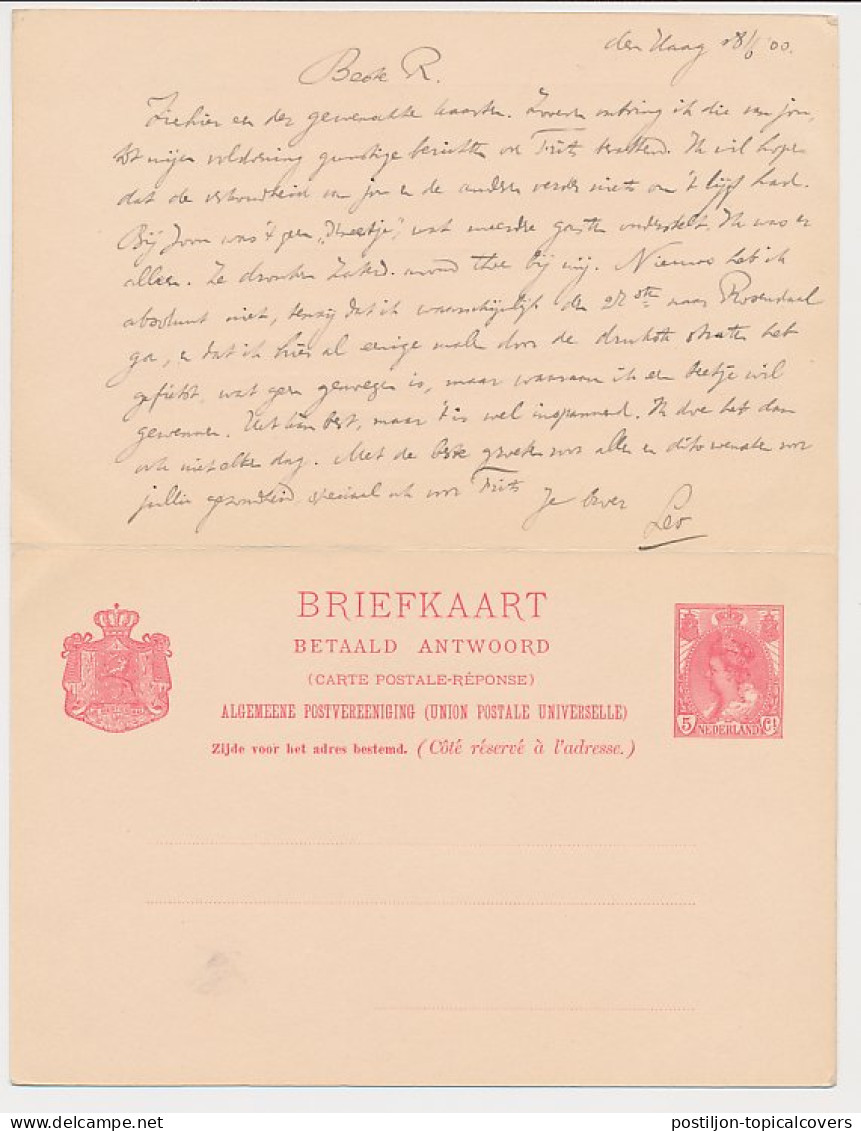 den Haag 18/6 '00.
Beste R.
Ziehier een der gewenschte kaarten. Zooeven ontving ik die van jou,
tot mijn voldoening gunstige berichten over Frits bevattend. Ik wil hopen
dat de verkoudheid van jou en de anderen verder niets om 't lijf had.
Bij Joon was 't geen „ ", wat meerdere gasten onderstelt. Ik was er
alleen. Ze dronken Zaterd. avond thee bij mij. Nieuws heb ik
absoluut niet, tenzij dat ik waarschijnlijk den 27ste naar Rosendaal
ga, en dat ik hier al eenige malen door de drukste straten heb
gefietst, wat geen genoegen is, maar waaraan ik een beetje wil
gewennen. Het kan best, maar 't is wel inspannend. Ik doe het dan
ook niet elken dag. Met de beste groeten voor allen en dito wenschen voor
jullie gezondheid, speciaal ook voor Frits
Je broer
Leo
BRIEFKAART
BETAALD ANTWOORD
(CARTE POSTALE-RÉPONSE)
ALGEMEENE POSTVEREENIGING (UNION POSTALE UNIVERSELLE)
Zijde voor het adres bestemd. (Côté réservé à l'adresse.)
5 NEDERLAND Ct
postiljon-topicalcovers